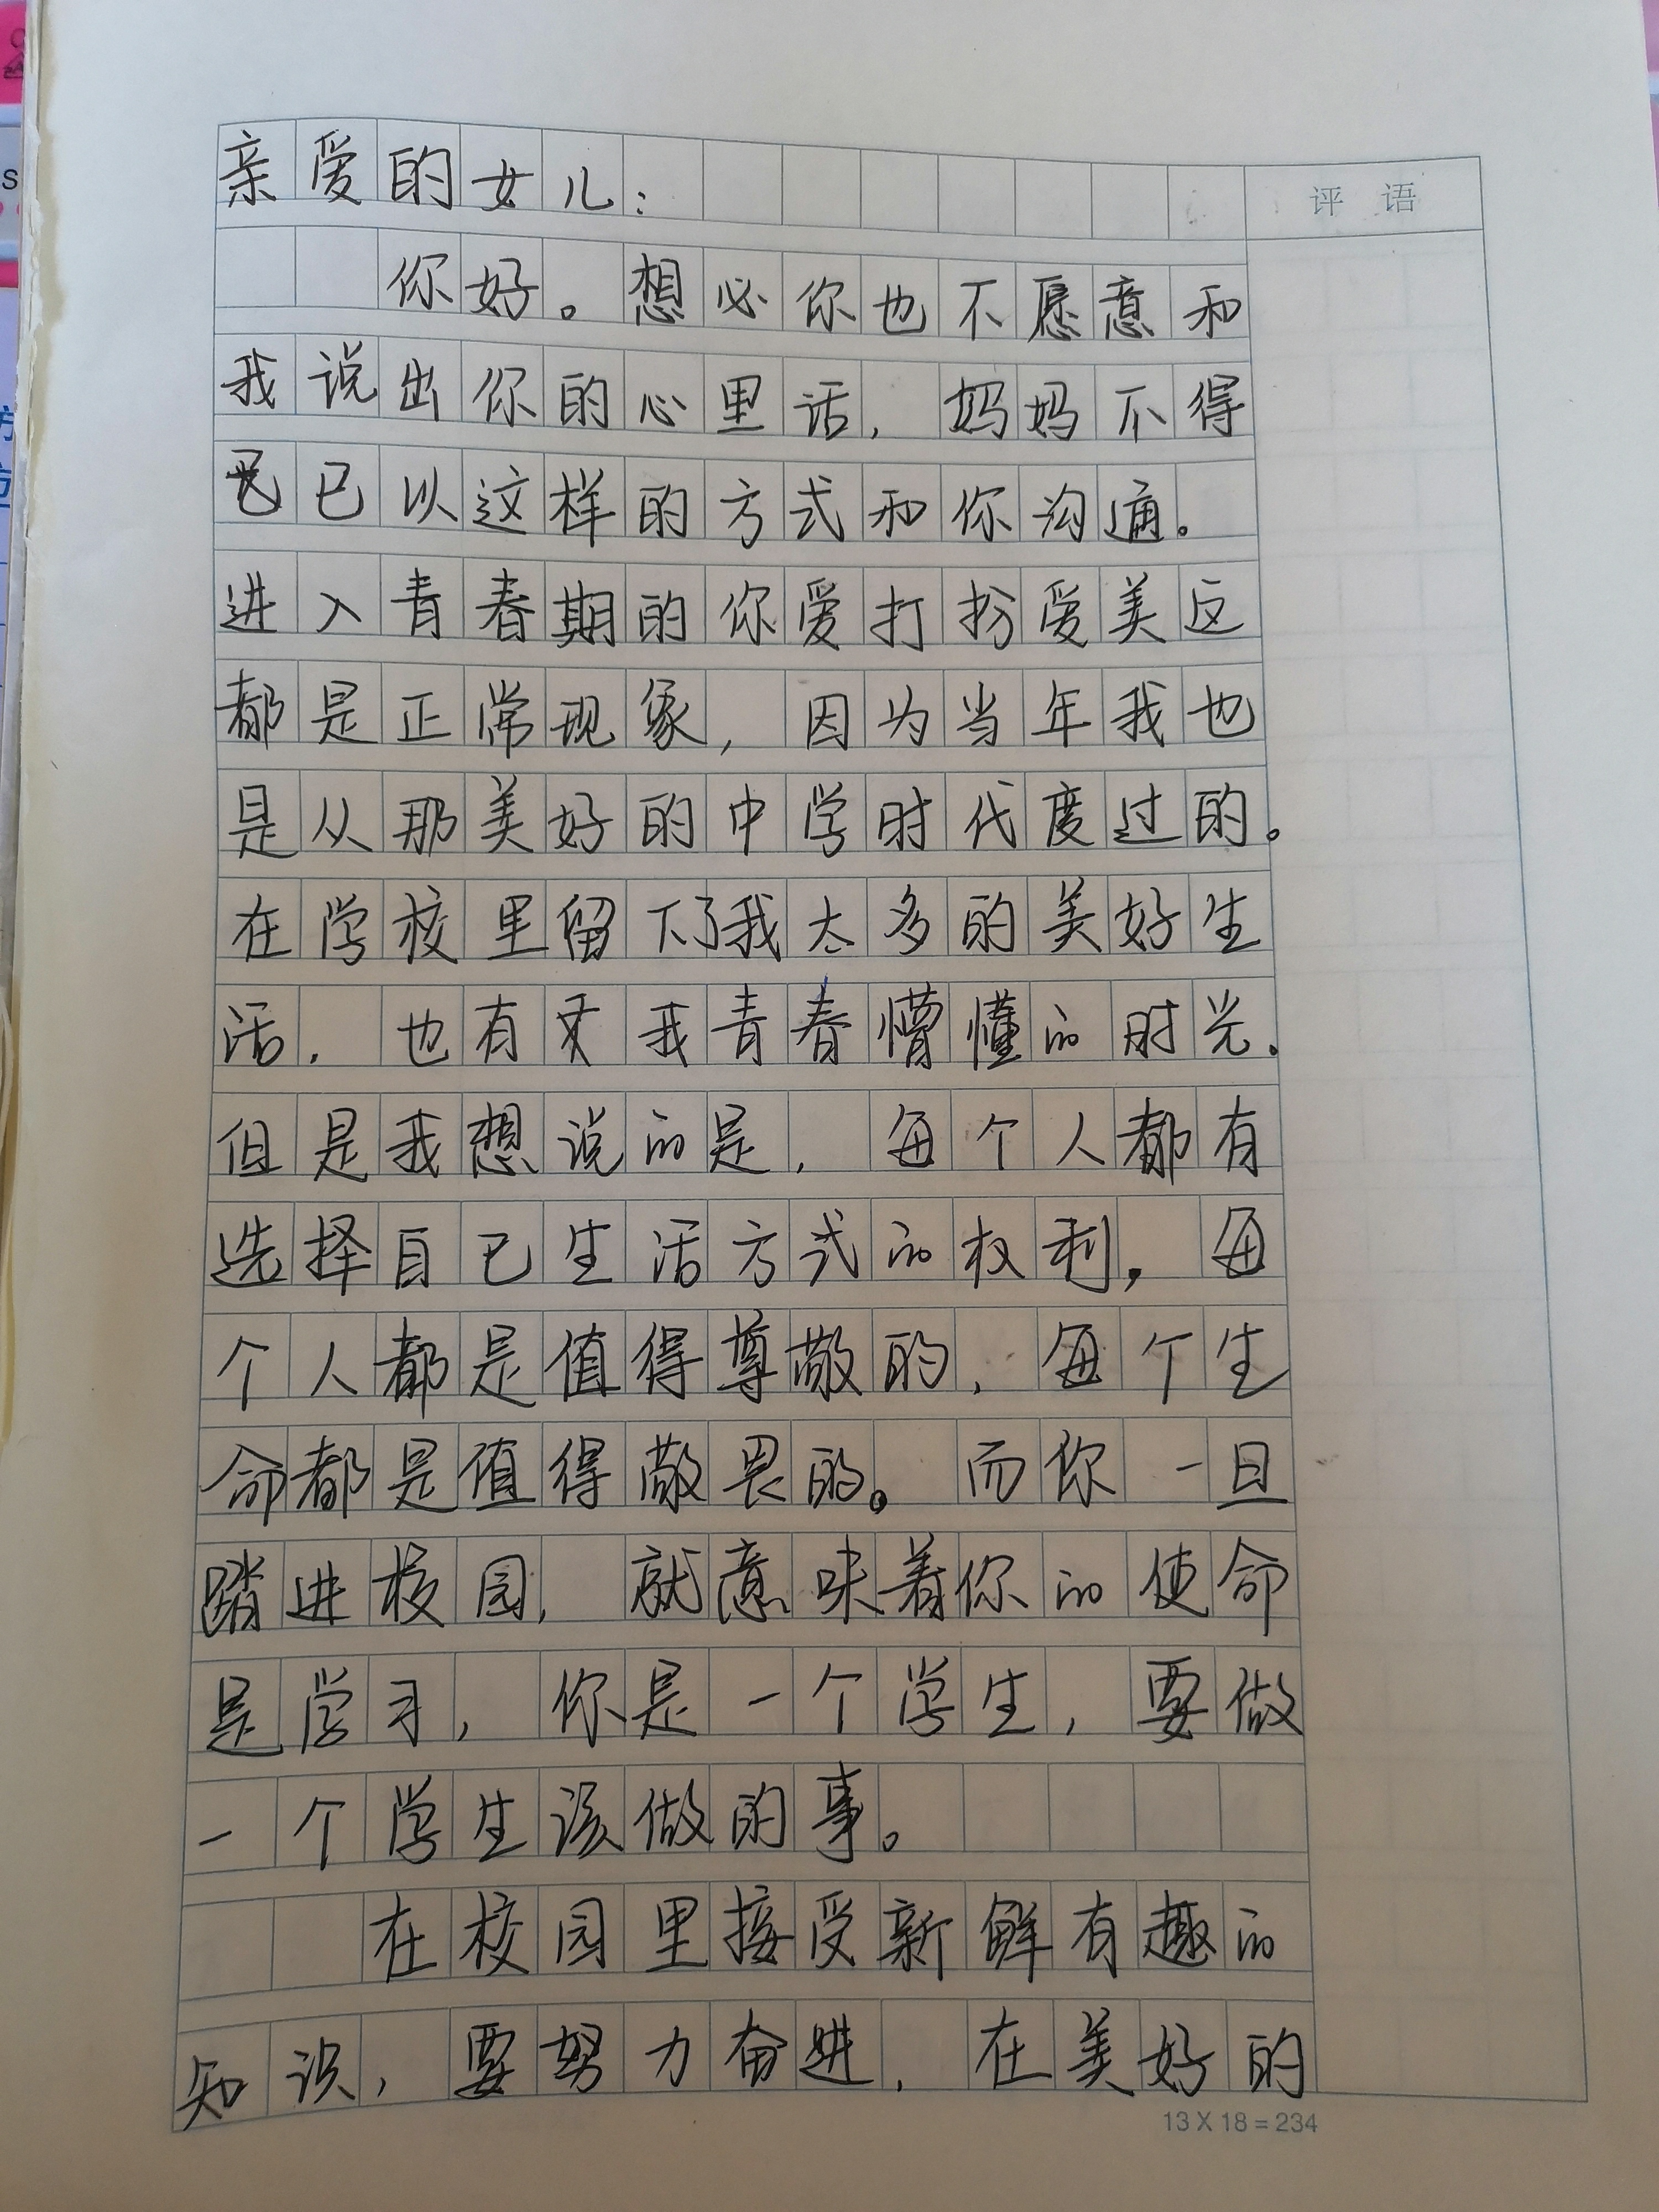 亲爱的女儿：
评 语
你好。想必你也不愿意和
我说出你的心里话，妈妈不得
已以这样的方式和你沟通。
进入青春期的你爱打扮爱美这
都是正常现象，因为当年我也
是从那美好的中学时代度过的。
在学校里留下了我太多的美好生
活，也有我青春懵懂的时光，
但是我想说的是，每个人都有
选择自己生活方式的权利，每
个人都是值得尊敬的，每个生
命都是值得敬畏的。而你一旦
踏进校园，就意味着你的使命
是学习，你是一个学生，要做
一个学生该做的事。
在校园里接受新鲜有趣的
知识，要努力奋进，在美好的
13 X 18 = 234